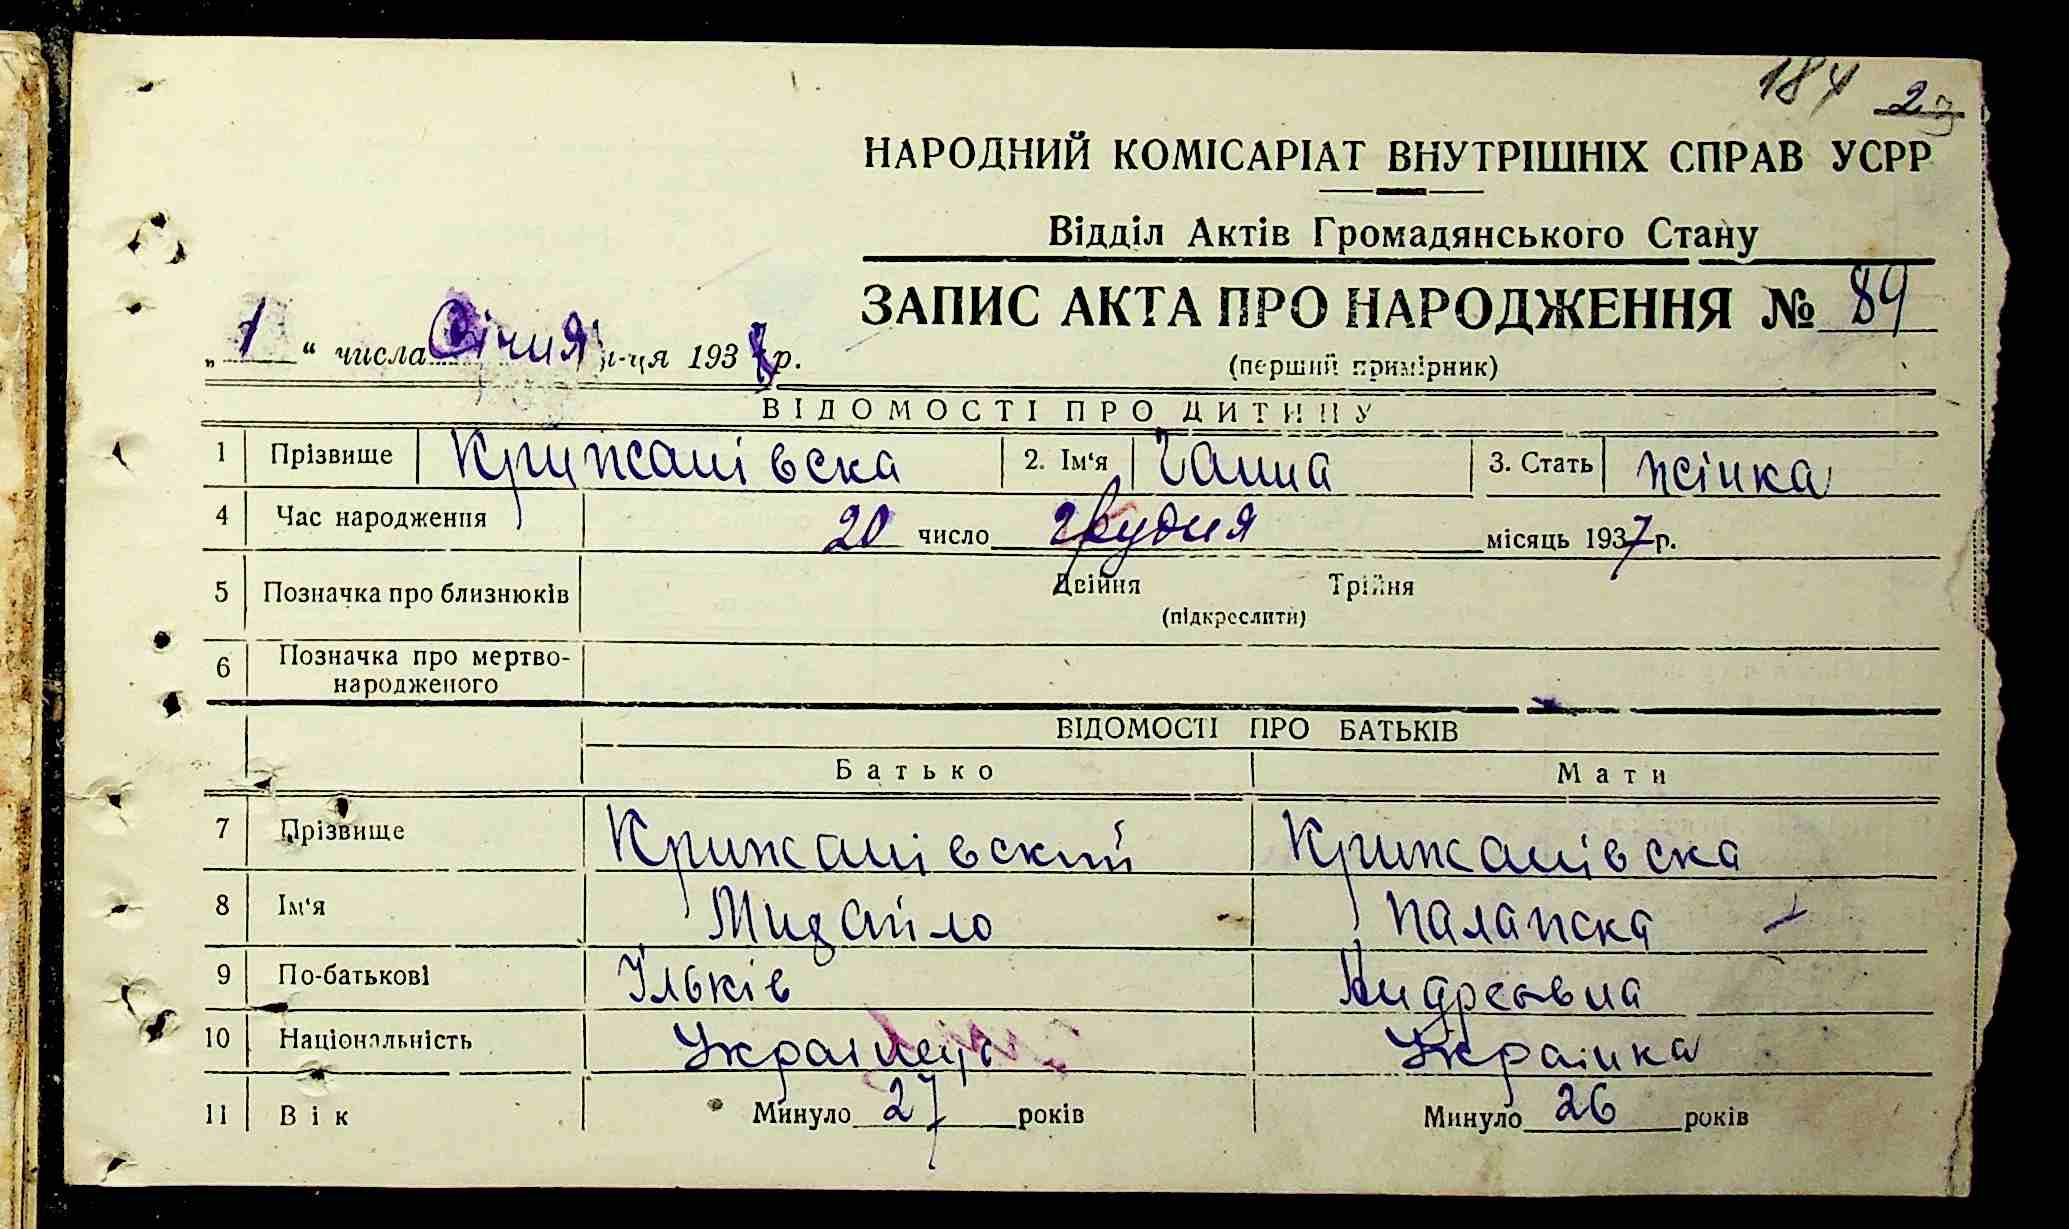 184 23
НАРОДНИЙ КОМІСАРІАТ ВНУТРІШНІХ СПРАВ УСРР
Відділ Актів Громадянського Стану
ЗАПИС АКТА ПРО НАРОДЖЕННЯ № 89
„ 1 “ числа Січня м-ця 193 р.
(перший примірник)
ВІДОМОСТІ ПРО ДИТИНУ
1 Прізвище Крижанівска 2. Ім‘я Ганна 3. Стать жінка
4 Час народження 20 число грудня місяць 1937 р.
5 Позначка про близнюків Двійня Трійня
(підкреслити)
6 Позначка про мертво-
народженого
ВІДОМОСТІ ПРО БАТЬКІВ
Батько Мати
7 Прізвище Крижанівский Крижанівска
8 Ім‘я Михайло Палажка
9 По-батькові Ільків Андреєвна
10 Національність Українець Українка
11 Вік Минуло 27 років Минуло 26 років